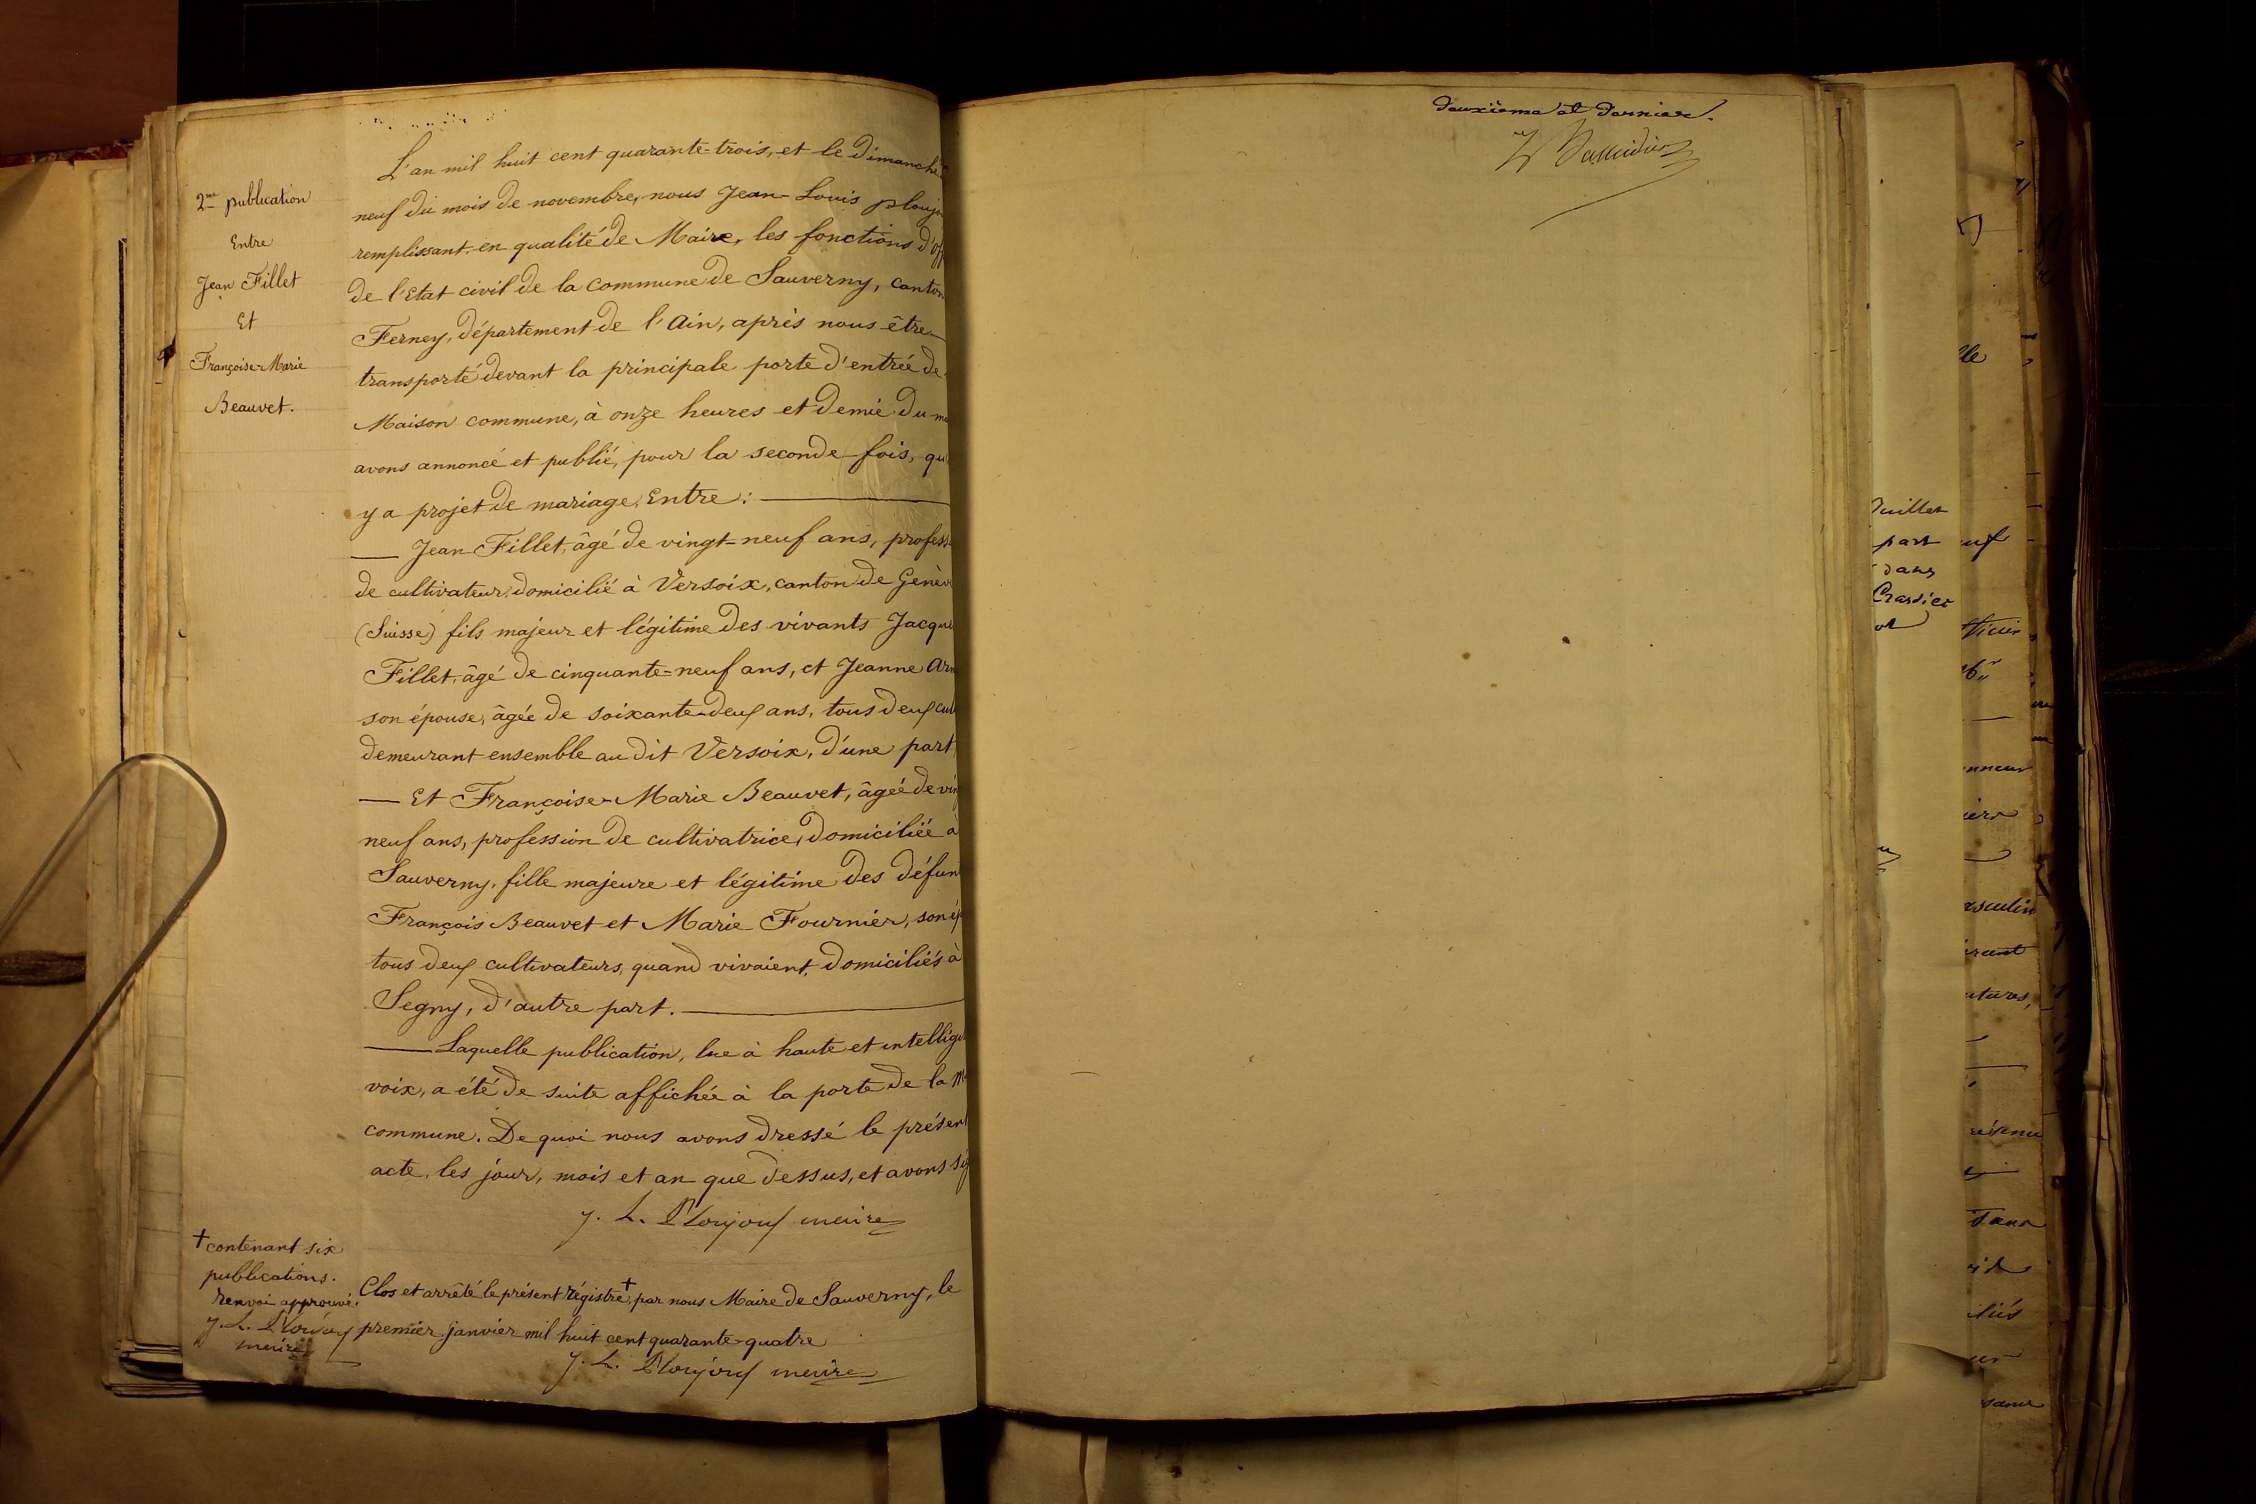 2me publication
Entre
Jean Fillet
Et
Françoise-Marie
Beauvet.
L'an mil huit cent quarante-trois, et le dimanche
neuf du mois de novembre, nous Jean-Louis
remplissant en qualité de Maire, les fonctions
de l'Etat civil de la commune de Sauverny, canton
Ferney, département de l'Ain, après nous être
transporté devant la principale porte d'entrée de
Maison commune, à onze heures et demie du
avons annoncé et publié, pour la seconde fois, qu
y a projet de mariage, Entre :
Jean Fillet, âgé de vingt-neuf ans, profess
de cultivateur, domicilié à Versoix, canton de Genèv
(Suisse) fils majeur et légitime des vivants Jacqu
Fillet, âgé de cinquante-neuf ans, et Jeanne
son épouse, âgée de soixante-deux ans, tous deux cul
demeurant ensemble au dit Versoix, d'une part
Et Françoise-Marie Beauvet, âgée de vin
neuf ans, profession de cultivatrice, domiciliée à
Sauverny, fille majeure et légitime des défun
François Beauvet et Marie Fournier, son ép
tous deux cultivateurs, quand vivaient, domiciliés à
Segny, d'autre part.
Laquelle publication, lue à haute et intelligi
voix, a été de suite affichée à la porte de la M
commune. De quoi nous avons dressé le présent
acte, les jour, mois et an que dessus, et avons sig
J. L. Ploujoux meire
+ contenant six
publications.
renvoi approuvé.
J. L. Ploujoux
meire
Clos et arrêté le présent régistre +, par nous Maire de Sauverny, le
premier janvier mil huit cent quarante-quatre
J. L. Ploujoux meire
deuxième et dernier.
juillet
part
dans
Crassier